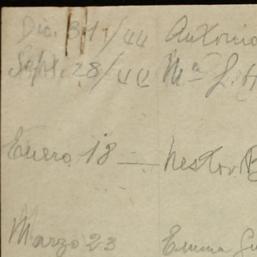 Dic. 31/44 Antonio
Sept. 28/44 Mª
Enero 18 — Nestor
Marzo 23 Emma